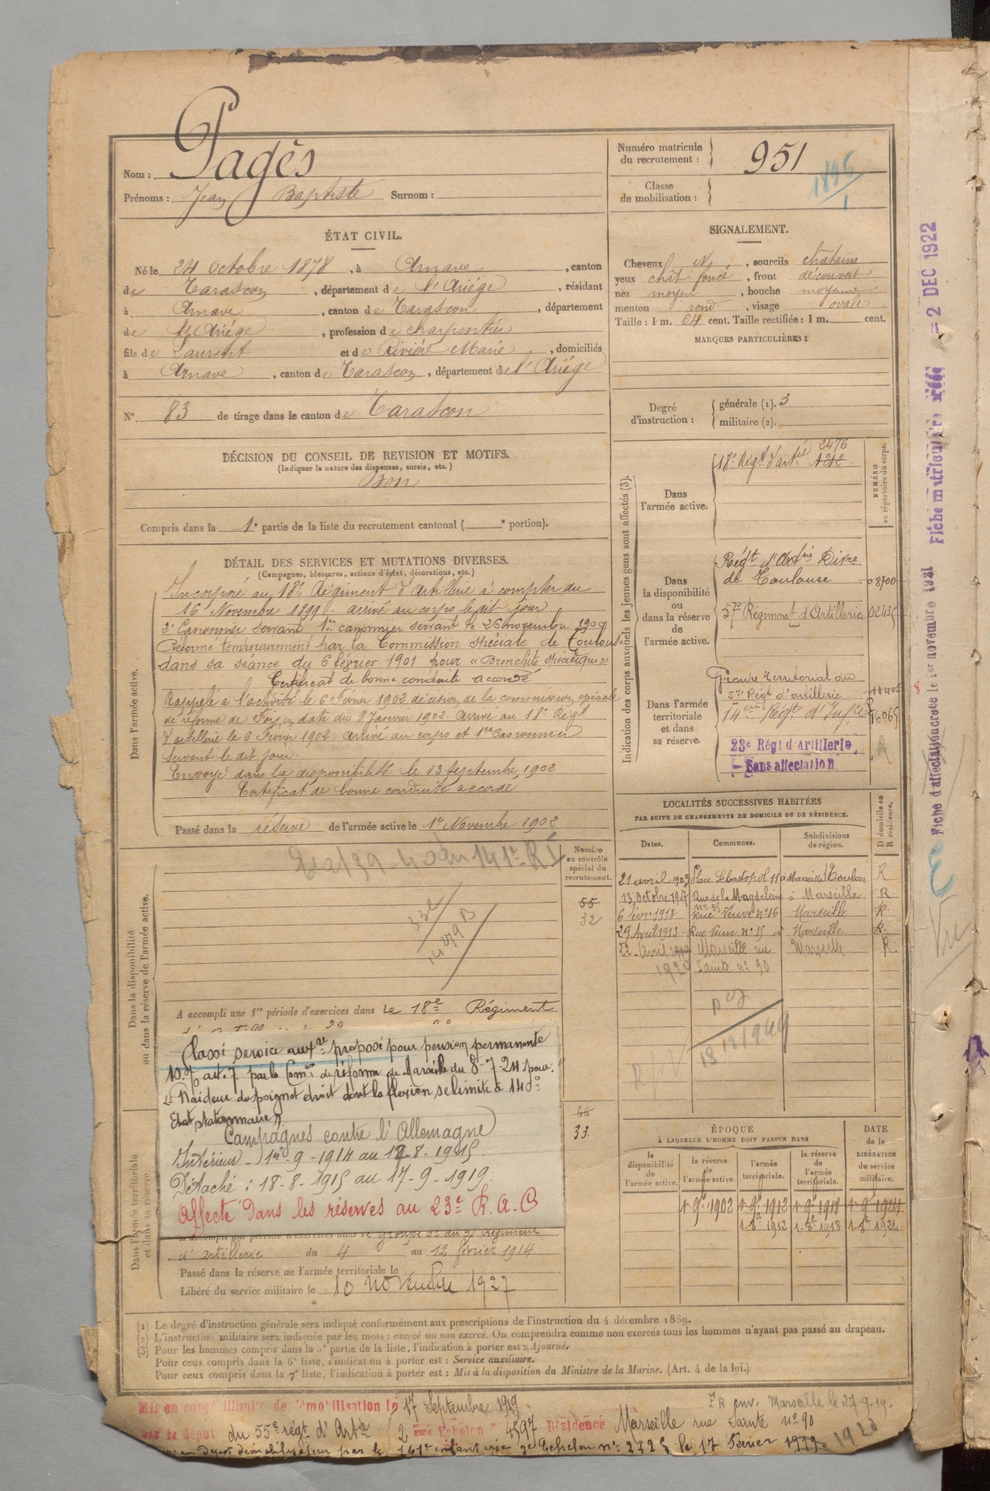 Nom : Pagès
Prénoms : Jean Baptiste Surnom :
Numéro matricule du recrutement : 951
Classe de mobilisation : 1896/1
ÉTAT CIVIL.
Né le 24 Octobre 1878, à Arnave, canton
de Tarascon, département de l'Ariège, résidant
à Arnave, canton de Tarascon, département
de l'Ariège, profession de charpentier
fils de Laurent et de Rivière Marie, domiciliés
à Arnave, canton de Tarascon, département de l'Ariège
N° 83 de tirage dans le canton de Tarascon
SIGNALEMENT.
Cheveux N, sourcils châtains
yeux chât foncé, front découvert
nez moyen, bouche moyenne
menton rond, visage ovale
Taille : 1 m. 64 cent. Taille rectifiée : 1 m. cent.
MARQUES PARTICULIÈRES :
Degré d'instruction : générale (1). 3
militaire (2).
DÉCISION DU CONSEIL DE REVISION ET MOTIFS.
(Indiquer la nature des dispenses, sursis, etc.)
Bon
Compris dans la 1e partie de la liste du recrutement cantonal ( e portion).
DÉTAIL DES SERVICES ET MUTATIONS DIVERSES.
(Campagnes, blessures, actions d'éclat, décorations, etc.)
Dans l'armée active.
Incorporé au 18e Régiment d'Artillerie à compter du
16 Novembre 1899. arrivé au corps le dit jour
2e Canonnier servant 1er canonnier servant le 26 novembre 1900
Réformé temporairement par la Commission spéciale de Toulouse
dans sa séance du 6 février 1901 pour « Bronchite spécifique »
Certificat de bonne conduite accordé
Rappelé à l'activité le 6 Février 1902 décision de la commission spéciale
de réforme de Foix en date du 8 Janvier 1902. Arrivé au 18e Régt
d'artillerie le 6 Février 1902 arrivé au corps et 1er canonnier
servant le dit jour
Envoyé dans la disponibilité le 13 Septembre 1902
Certificat de bonne conduite accordé
Passé dans la réserve de l'armée active le 1er Novembre 1902
Indication des corps auxquels les jeunes gens sont affectés (3).
NUMÉRO au répertoire du corps.
Dans l'armée active.
18e Régt d'artie 2476
Dans la disponibilité ou dans la réserve de l'armée active.
Régt d'Artie Divre
de Toulouse 08700
57e Régiment d'Artillerie
Dans l'armée territoriale et dans sa réserve.
Groupe territorial du
5e Régt d'artillerie
14e Régt d'Infie 16065
23e Régt d'Artillerie
Sans affectation
LOCALITÉS SUCCESSIVES HABITÉES
PAR SUITE DE CHANGEMENTS DE DOMICILE OU DE RÉSIDENCE.
Dates. Communes. Subdivisions de région. D domicile ou R résidence.
21 avril 1903 Place Sébastopol 11 à Marseille Toulon R
13 Octobre 1907 Rue de la Magdeleine à Marseille R
6 févr 1918 Rue Neuve n° 16 Marseille R.
29 Avril 1913 Rue Neuve n° 15 Marseille R.
Avril Marseille rue Marseille R.
1920 Sainte n° 90
18 12 1949
Dans la disponibilité ou dans la réserve de l'armée active.
Numéro au contrôle spécial du recrutement.
55
32
A accompli une 1re période d'exercices dans le 18e Régiment
Classé service auxre proposé pour pension permanente
10% art. 7 par la Comon de réforme de Marseille du 8-7-24 pour :
1° Raideur du poignet droit dont la flexion se limite à 140°
Etat stationnaire.
Campagnes contre l'Allemagne
Intérieur 1er-9-1914 au 17-8-1915.
Détaché : 18-8-1915 au 17-9-1919.
Affecté dans les réserves au 23e R.A.C
66
33
Dans l'armée territoriale et dans sa réserve.
d'artillerie du 4 au 12 février 1914
Passé dans la réserve de l'armée territoriale le
Libéré du service militaire le 10 novembre 1927
ÉPOQUE
À LAQUELLE L'HOMME DOIT PASSER DANS
DATE de la LIBÉRATION du service militaire.
la disponibilité de l'armée active. la réserve de l'armée active. l'armée territoriale. la réserve de l'armée territoriale.
1 9e 1902 1 9e 1913 1 9e 1918 1 9e 1924
1 8e 1912 1 8e 1918 1 8e 1924
(1) Le degré d'instruction générale sera indiqué conformément aux prescriptions de l'instruction du 4 décembre 1889.
(2) L'instruction militaire sera indiquée par les mots : exercé ou non exercé. On comprendra comme non exercés tous les hommes n'ayant pas passé au drapeau.
(3) Pour les hommes compris dans la 5e partie de la liste, l'indication à porter est : Ajourné.
Pour ceux compris dans la 6e liste, l'indication à porter est : Service auxiliaire.
Pour ceux compris dans la 7e liste, l'indication à porter est : Mis à la disposition du Ministre de la Marine. (Art. 4 de la loi.)
Mis en congé illimité de démobilisation le 17 Septembre 1919.
par le dépôt du 55e régt d'Artie 2eme Echelon n° 4597 Résidence Marseille rue Sainte n° 90
par le 141e infanterie 2e échelon n° 2725 le 17 Février 1920
env. Marseille le 27-9-19.
Fiche matriculaire créée 2 DEC 1922
Fiche d'affectation créée le 1er novembre 1931
Vu